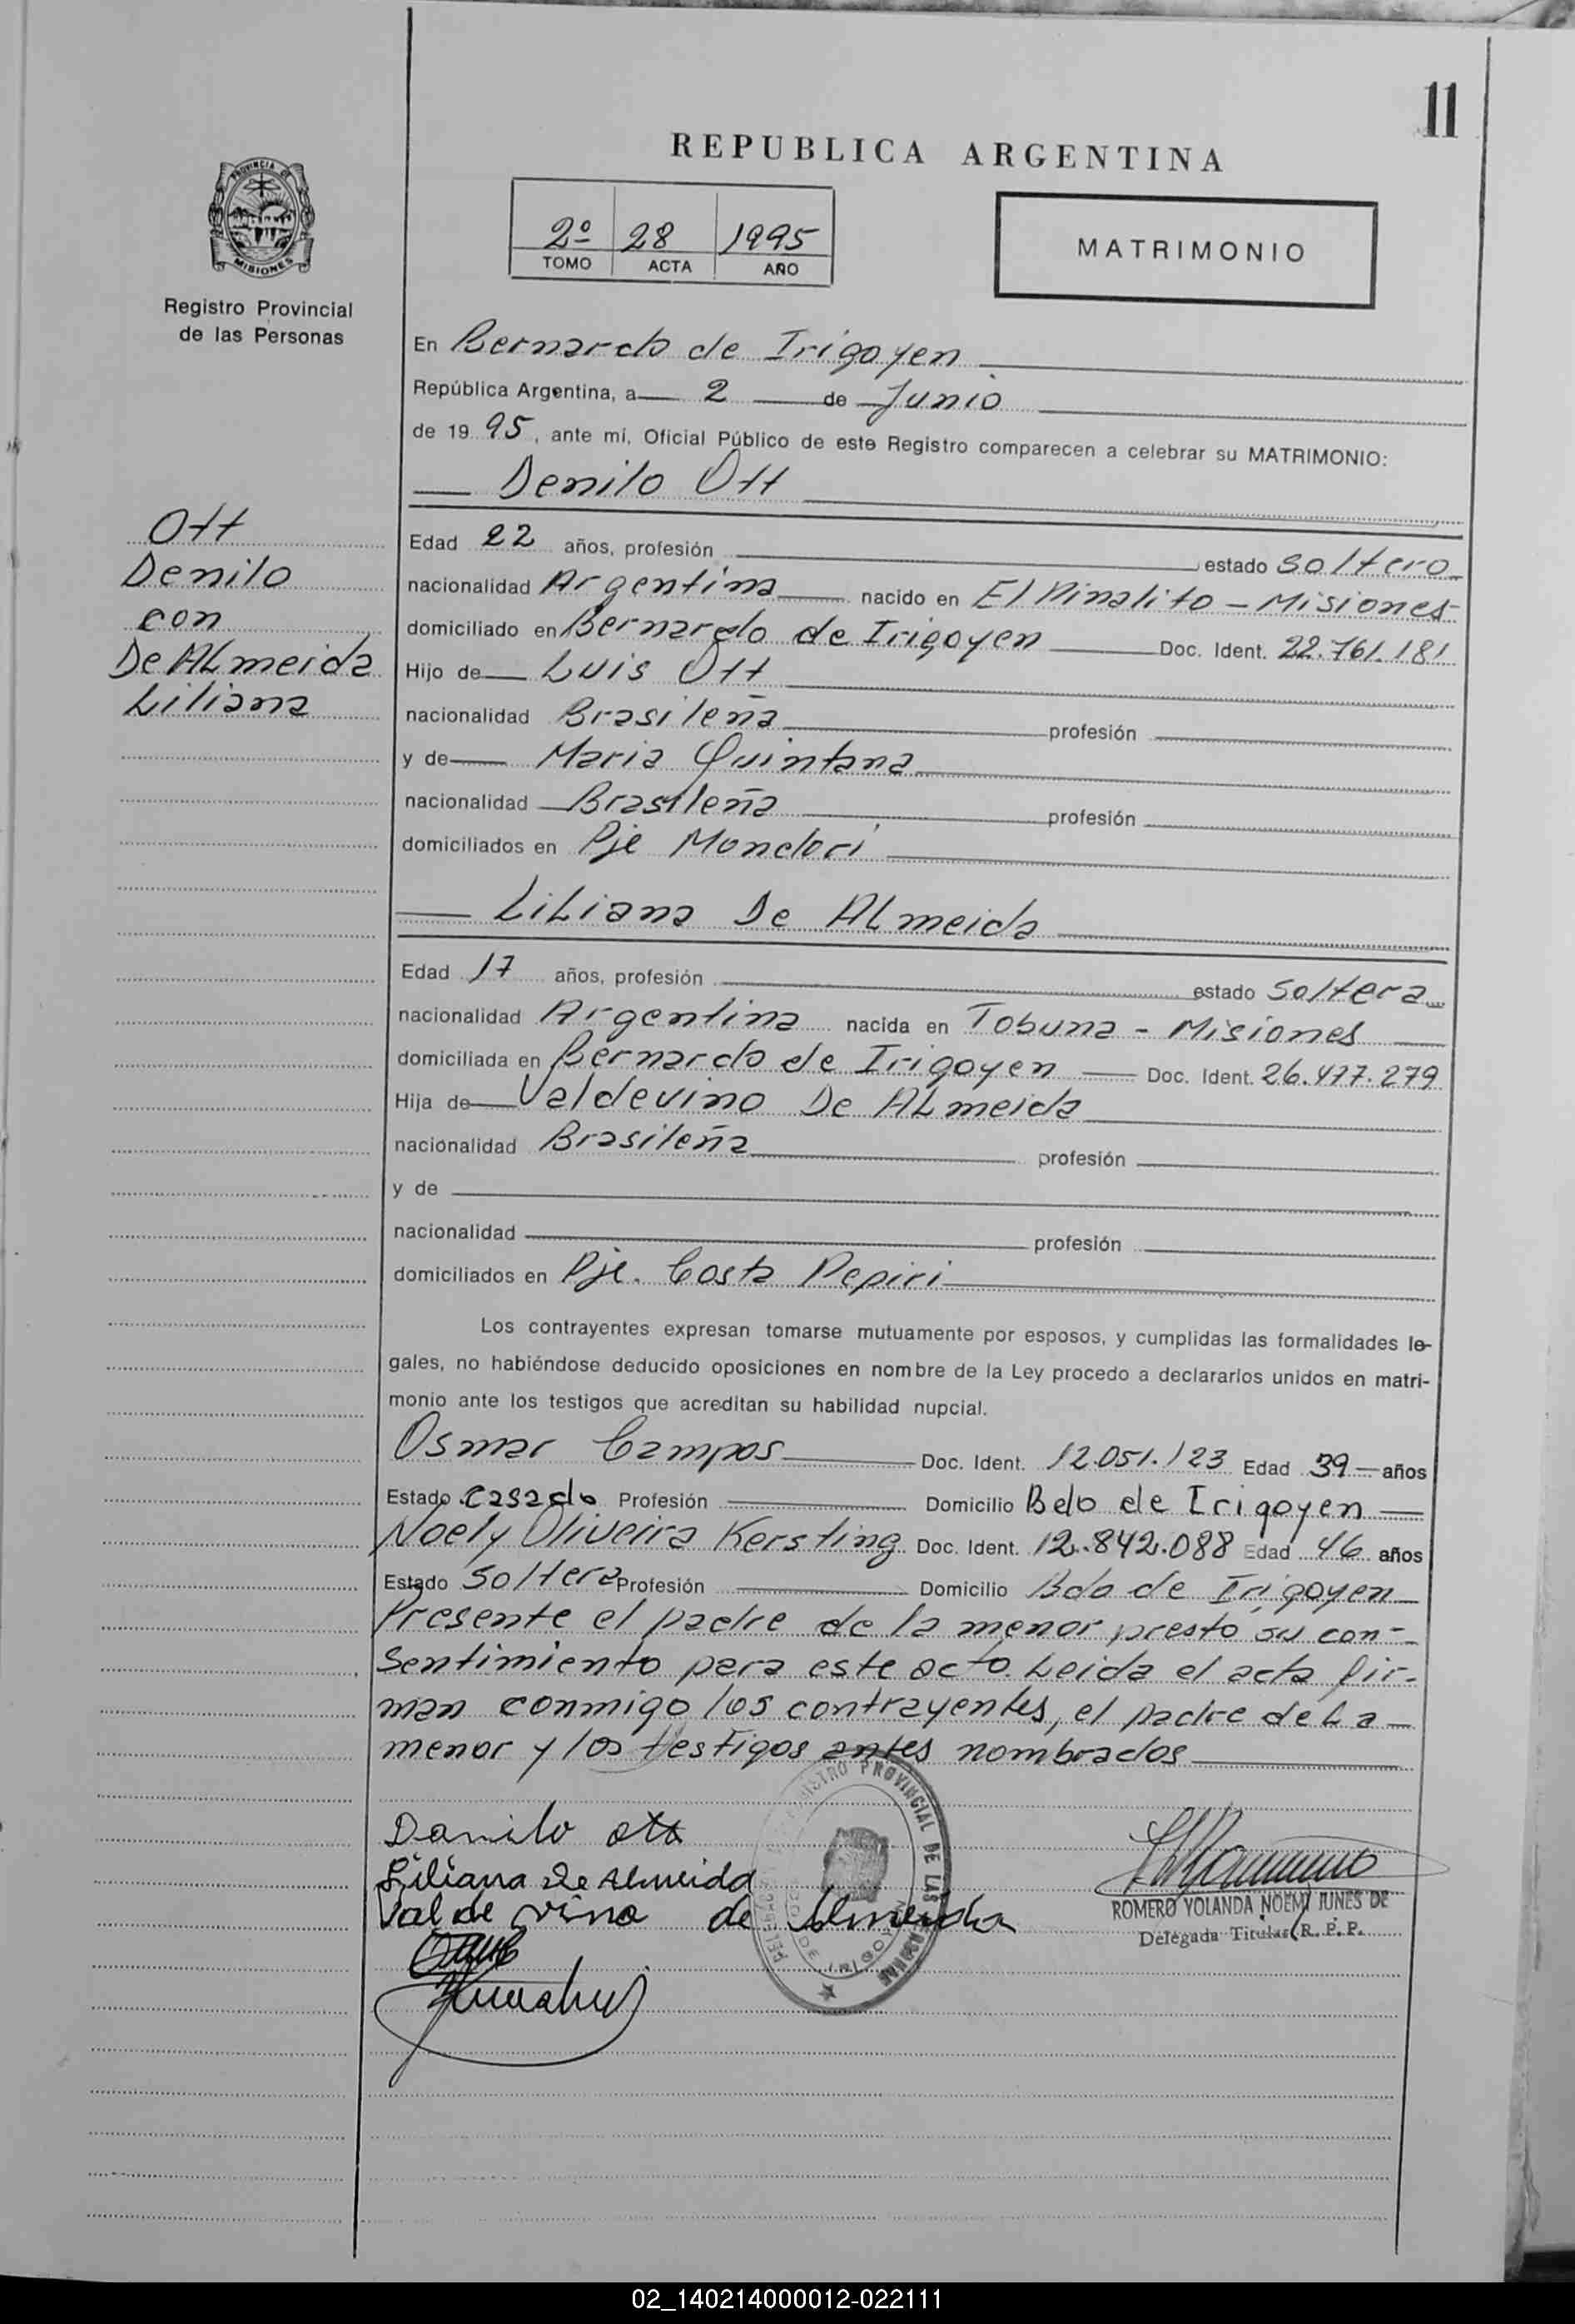 11
REPUBLICA ARGENTINA
PROVINCIA DE
MISIONES
Registro Provincial
de las Personas
2º 28 1995
TOMO ACTA AÑO
MATRIMONIO
En Bernardo de Irigoyen
República Argentina, a 2 de Junio
de 19 95, ante mi, Oficial Público de este Registro comparecen a celebrar su MATRIMONIO:
Denilo Ott
Ott
Denilo
con
De ALmeida
Liliana
Edad 22 años, profesión estado soltero
nacionalidad Argentina nacido en El Pinalito - Misiones
domiciliado en Bernardo de Irigoyen Doc. Ident. 22.761.181
Hijo de Luis Ott
nacionalidad Brasileña profesión
y de Maria Quintana
nacionalidad Brasileña profesión
domiciliados en Pje Mondori
LiLiana De ALmeida
Edad 17 años, profesión estado soltera
nacionalidad Argentina nacida en Tobuna - Misiones
domiciliada en Bernardo de Irigoyen Doc. Ident. 26.477.279
Hija de Valdevino De ALmeida
nacionalidad Brasileña profesión
y de
nacionalidad profesión
domiciliados en Pje. Costa Pepiri
Los contrayentes expresan tomarse mutuamente por esposos, y cumplidas las formalidades le-
gales, no habiéndose deducido oposiciones en nombre de la Ley procedo a declararlos unidos en matri-
monio ante los testigos que acreditan su habilidad nupcial.
Osmar Campos Doc. Ident. 12.051.123 Edad 39 años
Estado casado Profesión Domicilio Bdo de Irigoyen
Noely Oliveira Kersting Doc. Ident. 12.842.088 Edad 46 años
Estado Soltera Profesión Domicilio Bdo de Irigoyen
Presente el padre de la menor presto su con-
sentimiento para este acto. Leida el acta fir-
man conmigo los contrayentes, el padre de La
menor y los testigos antes nombrados
REGISTRO PROVINCIAL DE LAS PERSONAS
DE IRIGOYEN
Danilo ott
Liliana De Almeida
Valdevino de Almeida
ROMERO YOLANDA NOEMI JUNES DE
Delegada Titular R. P. P.
02_140214000012-022111